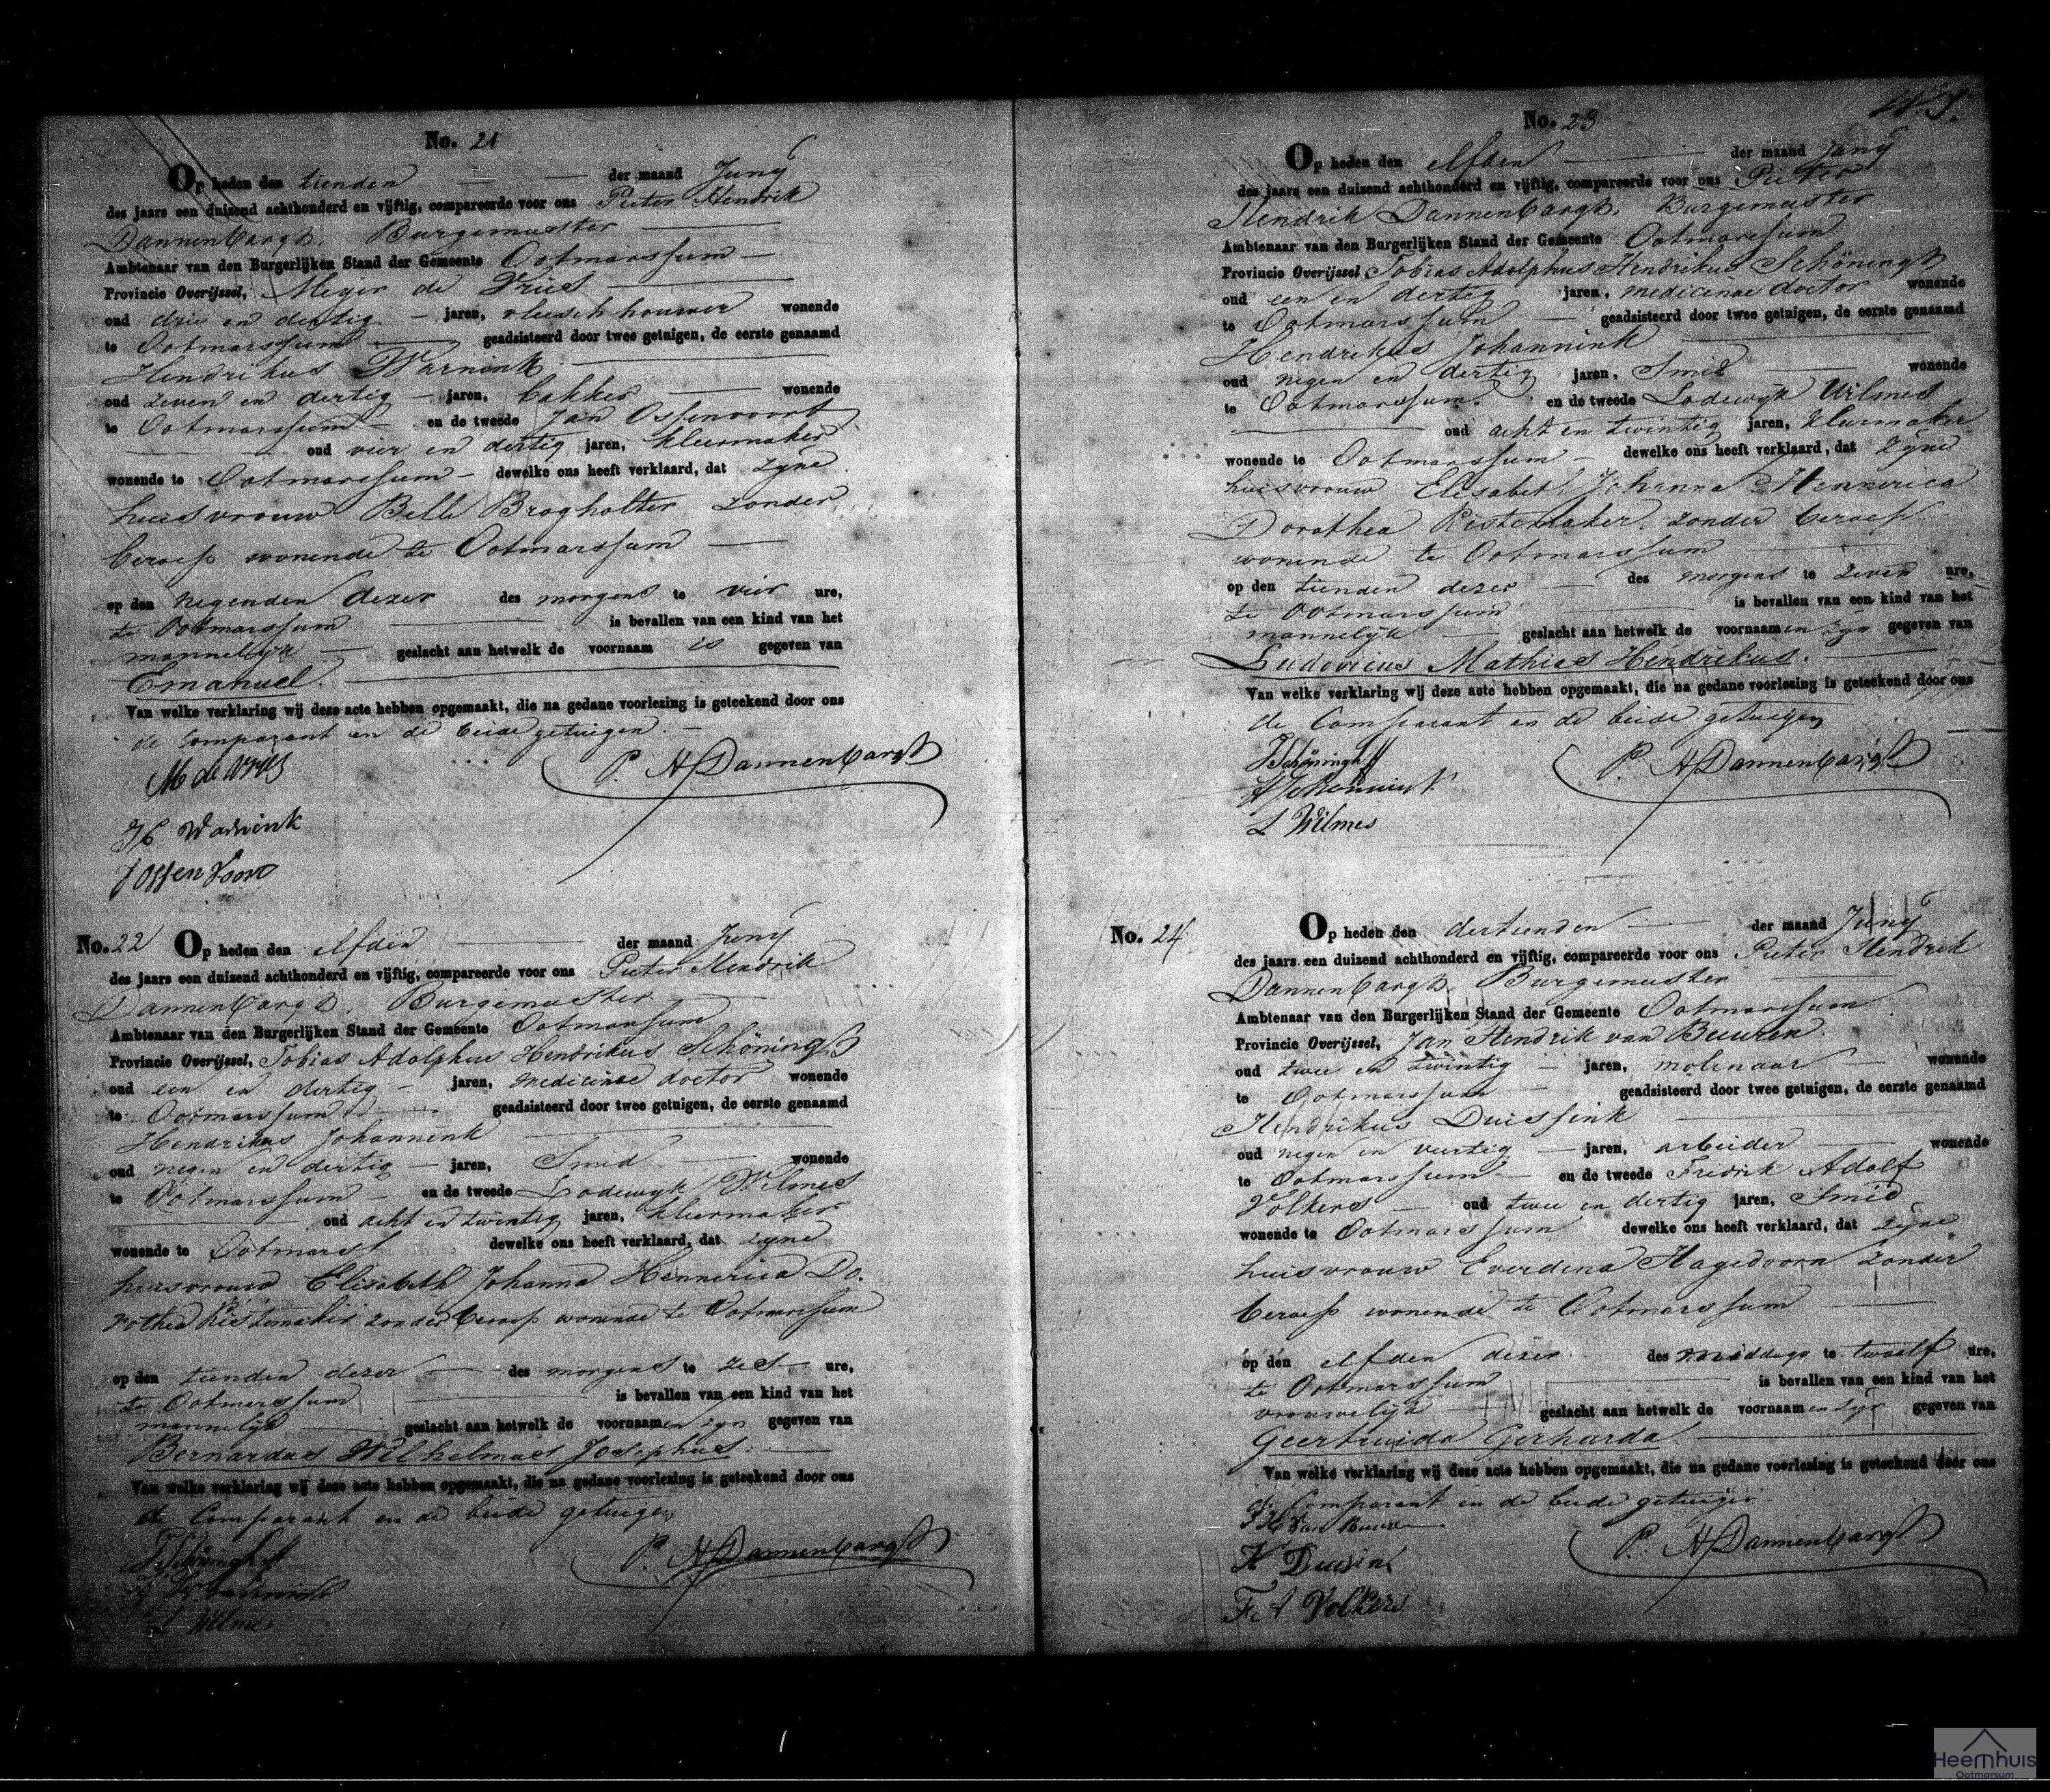 No. 21
Op heden den tienden der maand Juny
des jaars een duizend achthonderd en vijftig, compareerde voor ons Pieter Hendrik
Dannenbargh, Burgemeester
Ambtenaar van den Burgerlijken Stand der Gemeente Ootmarssum
Provincie Overijssel, Meyer de Vries
oud drie en dertig jaren, vleeschhouwer wonende
te Ootmarssum geadsisteerd door twee getuigen, de eerste genaamd
Hendrikus Warnink
oud zeven en dertig jaren, bakker wonende
te Ootmarssum en de tweede Jan Ossenvoort
oud vier en dertig jaren, kleermaker
wonende te Ootmarssum dewelke ons heeft verklaard, dat zyne
huisvrouw Belle Brogholter zonder
beroep wonende te Ootmarssum
op den negenden dezer des morgens te vier ure,
te Ootmarssum is bevallen van een kind van het
mannelyk geslacht aan hetwelk de voornaam is gegeven van
Emanuel.
Van welke verklaring wij deze acte hebben opgemaakt, die na gedane voorlezing is geteekend door ons
de Comparant en de beide getuigen.
M de Vries
P. H Dannenbargh
H Warnink
J Ossenvoort
No. 22 Op heden den elfden der maand Juny
des jaars een duizend achthonderd en vijftig, compareerde voor ons Pieter Hendrik
Dannenbargh, Burgemeester
Ambtenaar van den Burgerlijken Stand der Gemeente Ootmarssum
Provincie Overijssel, Tobias Adolphus Hendrikus Schöningh
oud een en dertig jaren, medicinae doctor wonende
te Ootmarssum geadsisteerd door twee getuigen, de eerste genaamd
Hendrikus Johannink
oud negen en dertig jaren, Smid wonende
te Ootmarssum en de tweede Lodewyk Wilmes
oud acht en twintig jaren, kleermaker
wonende te Ootmarss dewelke ons heeft verklaard, dat zyne
huisvrouw Elisabeth Johanna Hennerica Do.
rothea Ristemaker zonder beroep wonende te Ootmarssum
op den tienden dezer des morgens te zes ure,
te Ootmarssum is bevallen van een kind van het
mannelyk geslacht aan hetwelk de voornaamen zyn gegeven van
Bernardus Wilhelmus Josephus.
Van welke verklaring wij deze acte hebben opgemaakt, die na gedane voorlezing is geteekend door ons
de Comparant en de beide getuigen
Schöningh
P. H Dannenbargh
L Wilmes
No. 23
Op heden den elfden der maand Juny
des jaars een duizend achthonderd en vijftig, compareerde voor ons Pieter
Hendrik Dannenbargh, Burgemeester
Ambtenaar van den Burgerlijken Stand der Gemeente Ootmarssum
Provincie Overijssel, Tobias Adolphus Hendrikus Schöningh
oud een en dertig jaren, medicinae doctor wonende
te Ootmarssum geadsisteerd door twee getuigen, de eerste genaamd
Hendrikus Johannink
oud negen en dertig jaren, Smid wonende
te Ootmarssum. en de tweede Lodewyk Wilmes
oud acht en twintig jaren, kleermaker
wonende te Ootmarssum dewelke ons heeft verklaard, dat zyne
huisvrouw Elisabet Johanna Hennerica
Dorothea Ristemaker. zonder beroep
wonende te Ootmarssum
op den tienden dezer des morgens te zeven ure,
te Ootmarssum is bevallen van een kind van het
mannelyk geslacht aan hetwelk de voornaamen zyn gegeven van
Ludovicus Mathias Hendrikus.
Van welke verklaring wij deze acte hebben opgemaakt, die na gedane voorlezing is geteekend door ons
de Comparant en de beide getuigen
Schöningh
P. H Dannenbargh
H Johannink
L Wilmes
No. 24 Op heden den dertienden der maand Juny
des jaars een duizend achthonderd en vijftig, compareerde voor ons Pieter Hendrik
Dannenbargh, Burgemeester
Ambtenaar van den Burgerlijken Stand der Gemeente Ootmarssum
Provincie Overijssel, Jan Hendrik van Beuren
oud twee en twintig jaren, molenaar wonende
te Ootmarssum geadsisteerd door twee getuigen, de eerste genaamd
Hendrikus Duissink
oud negen en veertig jaren, arbeider wonende
te Ootmarssum en de tweede Fredrik Adolf
Volkers oud twee en dertig jaren, Smid
wonende te Ootmarssum dewelke ons heeft verklaard, dat zyne
huisvrouw Everdina Hagedoorn zonder
beroep wonende te Ootmarssum
op den elfden dezer des middags te twaalf ure,
te Ootmarssum is bevallen van een kind van het
vrouwelyk geslacht aan hetwelk de voornaamen zyn gegeven van
Geertruida Gerharda.
Van welke verklaring wij deze acte hebben opgemaakt, die na gedane voorlezing is geteekend door ons
de Comparant en de beide getuigen
P. H Dannenbargh
H Duesink
F. A Volkers
Heemhuis
Ootmarsum